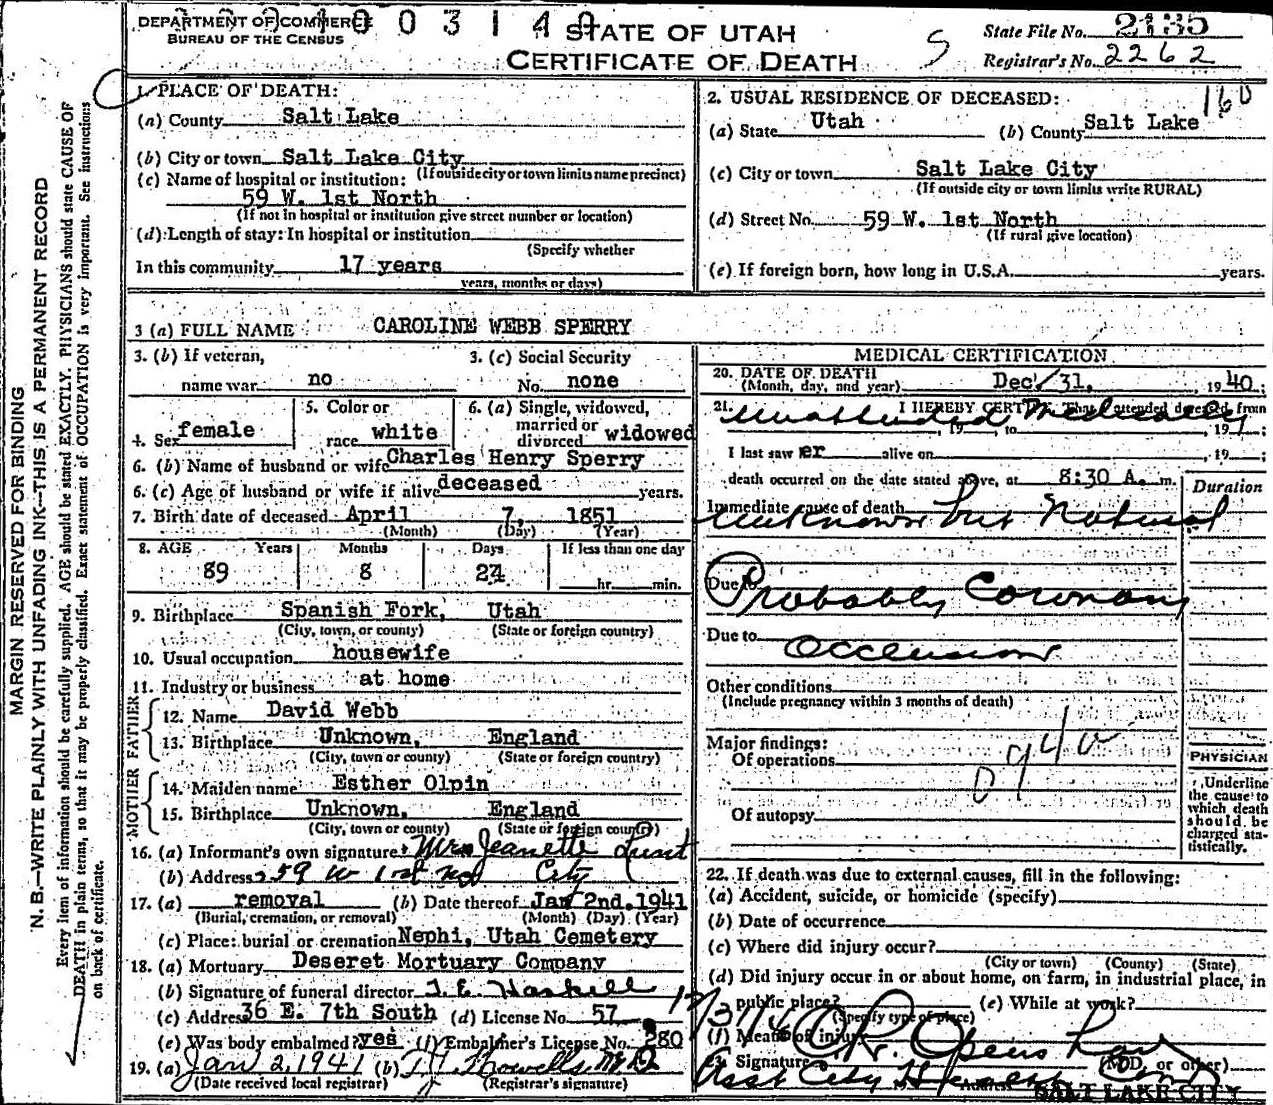 DEPARTMENT OF COMMERCE
BUREAU OF THE CENSUS
0 0 3 1 4
STATE OF UTAH
CERTIFICATE OF DEATH
State File No. 2135
Registrar's No. 2262
MARGIN RESERVED FOR BINDING
N. B.—WRITE PLAINLY WITH UNFADING INK—THIS IS A PERMANENT RECORD
Every item of information should be carefully supplied. AGE should be stated EXACTLY. PHYSICIANS should state CAUSE OF
DEATH in plain terms, so that it may be properly classified. Exact statement of OCCUPATION is very important. See instructions
on back of certificate.
1. PLACE OF DEATH:
(a) County Salt Lake
(b) City or town Salt Lake City
(If outside city or town limits name precinct)
(c) Name of hospital or institution:
59 W. 1st North
(If not in hospital or institution give street number or location)
(d) Length of stay: In hospital or institution
(Specify whether
In this community 17 years
years, months or days)
2. USUAL RESIDENCE OF DECEASED: 160
(a) State Utah (b) County Salt Lake
(c) City or town Salt Lake City
(If outside city or town limits write RURAL)
(d) Street No. 59 W. 1st North
(If rural give location)
(e) If foreign born, how long in U.S.A. years.
3 (a) FULL NAME CAROLINE WEBB SPERRY
3. (b) If veteran, name war no
3. (c) Social Security No. none
4. Sex female
5. Color or race white
6. (a) Single, widowed, married or divorced widowed
6. (b) Name of husband or wife Charles Henry Sperry
6. (c) Age of husband or wife if alive deceased years.
7. Birth date of deceased April 7, 1851
(Month) (Day) (Year)
8. AGE Years Months Days If less than one day
89 8 24 hr. min.
9. Birthplace Spanish Fork, Utah
(City, town, or county) (State or foreign country)
10. Usual occupation housewife
11. Industry or business at home
FATHER
12. Name David Webb
13. Birthplace Unknown, England
(City, town or county) (State or foreign country)
MOTHER
14. Maiden name Esther Olpin
15. Birthplace Unknown, England
(City, town or county) (State or foreign country)
16. (a) Informant's own signature Mrs Jeanette Lunt
(b) Address 259 W 1st No City
17. (a) removal (b) Date thereof Jan 2nd. 1941
(Burial, cremation, or removal) (Month) (Day) (Year)
(c) Place: burial or cremation Nephi, Utah Cemetery
18. (a) Mortuary Deseret Mortuary Company
(b) Signature of funeral director J. E. Haskell
(c) Address 36 E. 7th South (d) License No. 57
(e) Was body embalmed? yes (f) Embalmer's License No. 280
19. (a) Jan 2, 1941 (b) T. J. Howells M.D.
(Date received local registrar) (Registrar's signature)
MEDICAL CERTIFICATION
20. DATE OF DEATH
(Month, day, and year) Dec. 31, 1940;
21. I HEREBY CERTIFY That I attended deceased from
unattended Medically
, 19 , to , 19 ;
I last saw er alive on , 19 ;
death occurred on the date stated above, at 8:30 A. m.
Duration
Immediate cause of death
Unknown but Natural
Due to Probably Coronary
Due to Occlusion
Other conditions
(Include pregnancy within 3 months of death)
Major findings:
Of operations
094a
Of autopsy
PHYSICIAN
Underline
the cause to
which death
should be
charged sta-
tistically.
22. If death was due to external causes, fill in the following:
(a) Accident, suicide, or homicide (specify)
(b) Date of occurrence
(c) Where did injury occur?
(City or town) (County) (State)
(d) Did injury occur in or about home, on farm, in industrial place, in
public place? (e) While at work?
(Specify type of place)
(f) Means of injury
12/31/40
Signature (MD, or other)
Asst City
Address SALT LAKE CITY